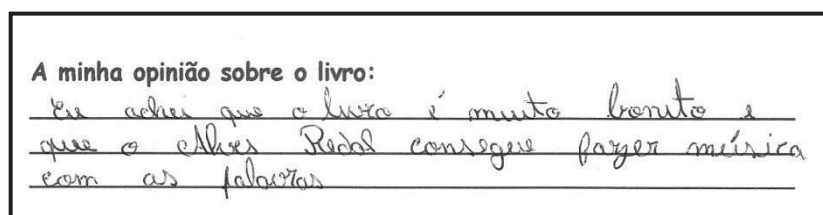 A minha opinião sobre o livro:
Eu achei que o livro é muito bonito e
que o Alves Redol consegue fazer música
com as palavras